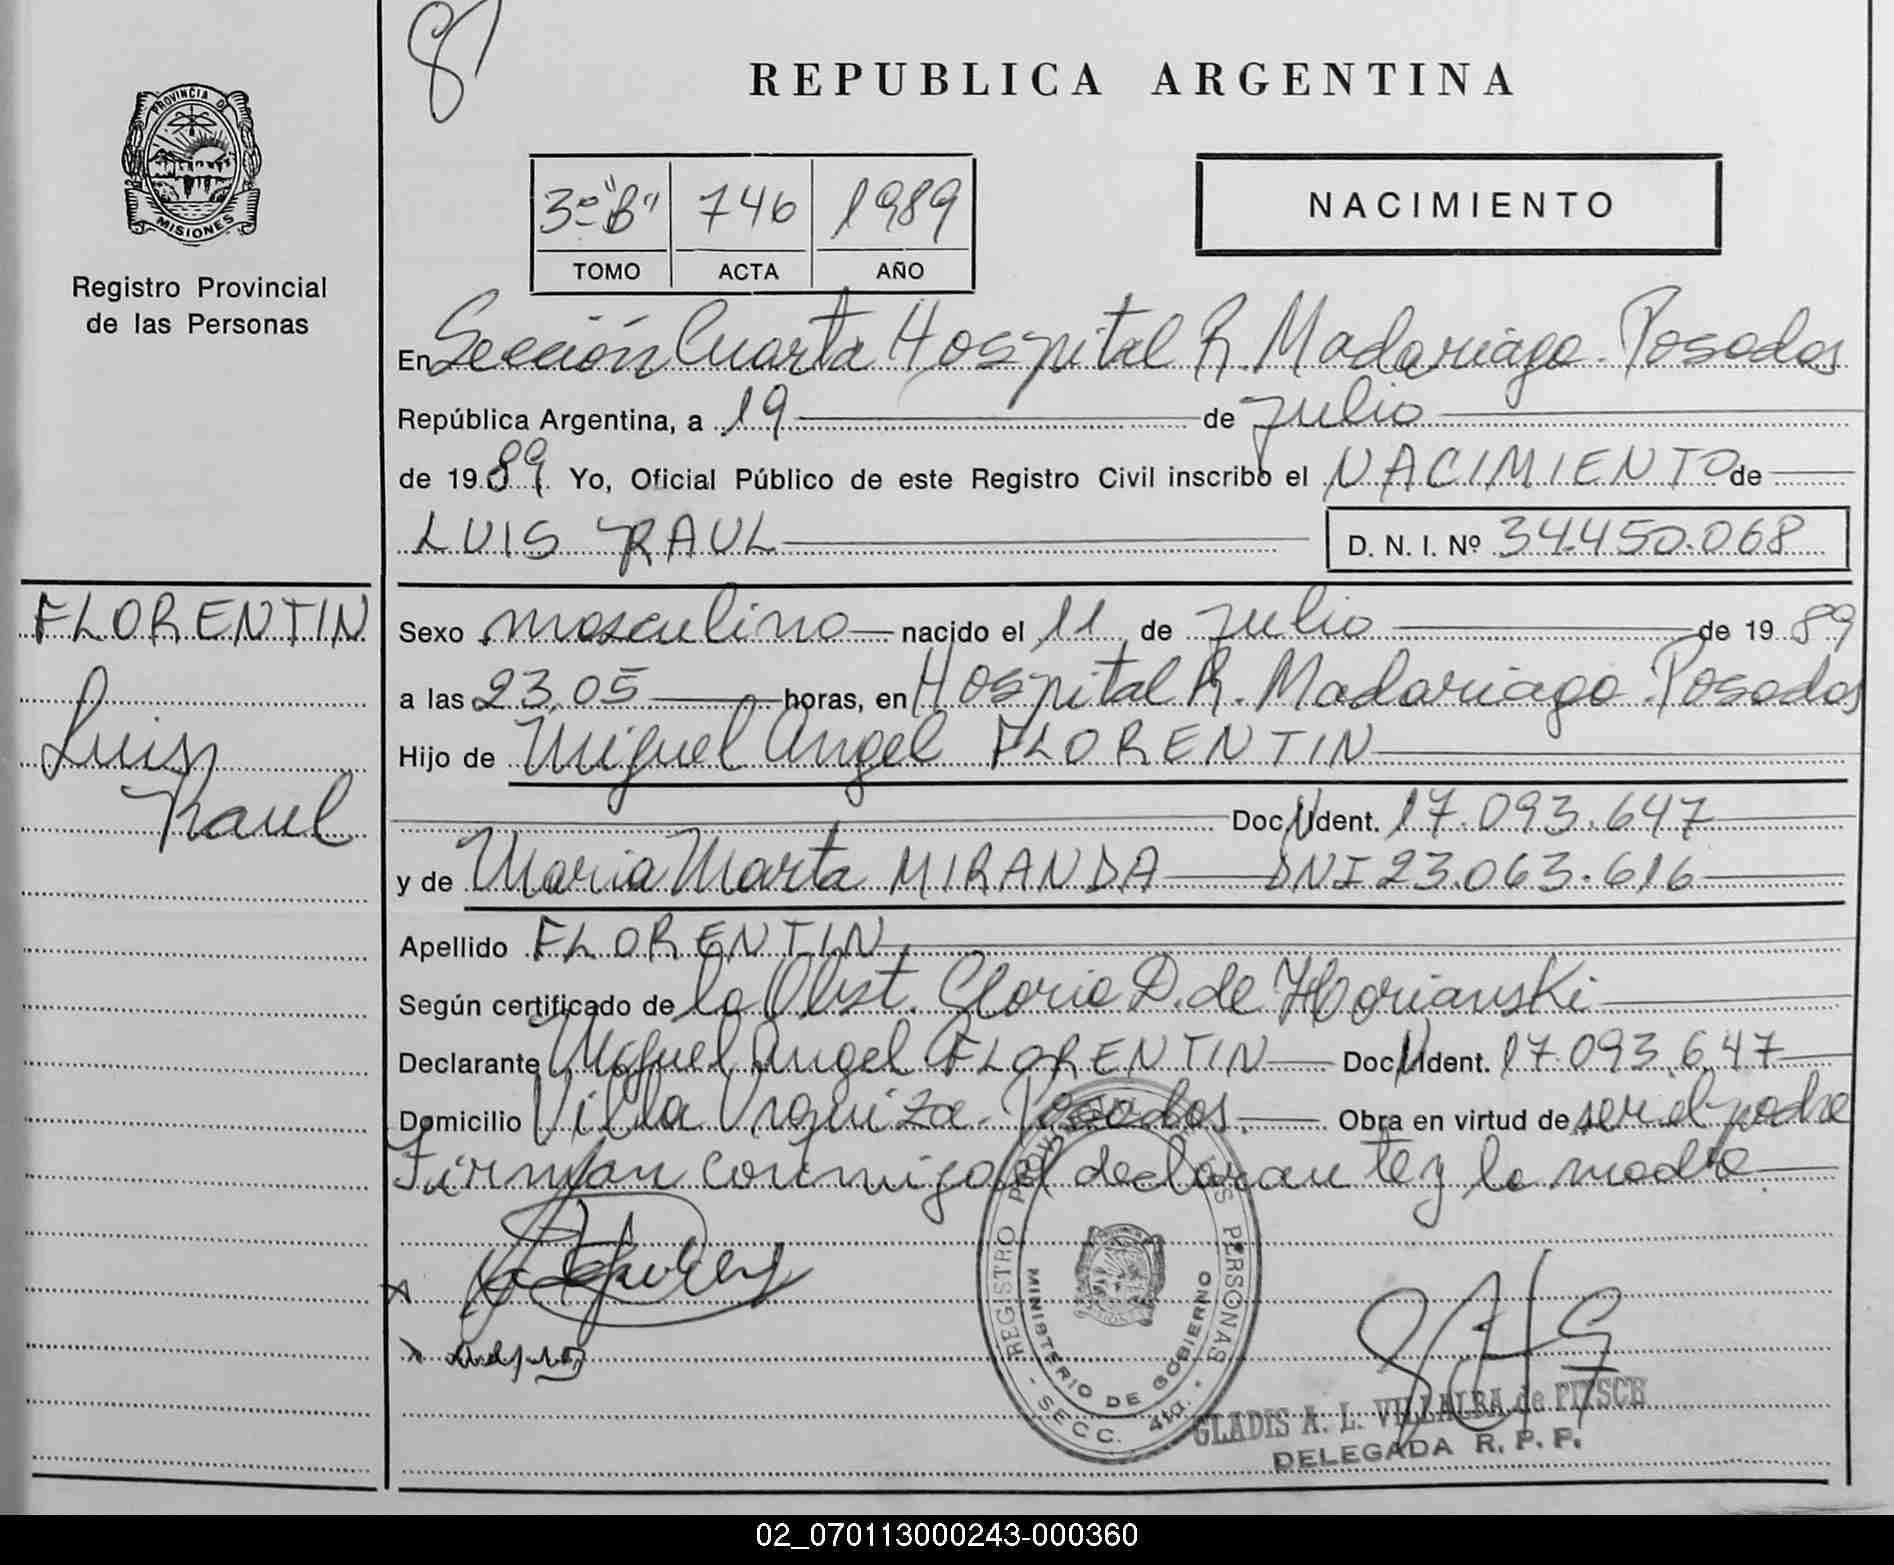 87
PROVINCIA D
MISIONES
Registro Provincial
de las Personas
REPUBLICA ARGENTINA
3º "B" 746 1989
TOMO ACTA AÑO
NACIMIENTO
En Sección Cuarta Hospital R. Madariaga. Posadas
República Argentina, a 19 de julio
de 1989 Yo, Oficial Público de este Registro Civil inscribo el NACIMIENTO de
LUIS RAUL D. N. I. Nº 34.450.068
FLORENTIN
Luis
Raul
Sexo masculino nacido el 11 de julio de 1989
a las 23,05 horas, en Hospital R. Madariaga. Posadas
Hijo de Miguel Angel FLORENTIN
Doc. Ident. 17.093.647
y de Maria Marta MIRANDA DNI 23.063.616
Apellido FLORENTIN
Según certificado de la Obst. Gloria D. de
Declarante Miguel Angel FLORENTIN Doc. Ident. 17.093.647
Domicilio Villa Urquiza. Posadas. Obra en virtud de ser el padre
Firman conmigo el declarante y la madre.
REGISTRO PROVINCIAL DE LAS PERSONAS
MINISTERIO DE GOBIERNO
- SECC. 4ta. -
GLADIS A. L. VILLALBA de PITSCH
DELEGADA R. P. P.
02_070113000243-000360